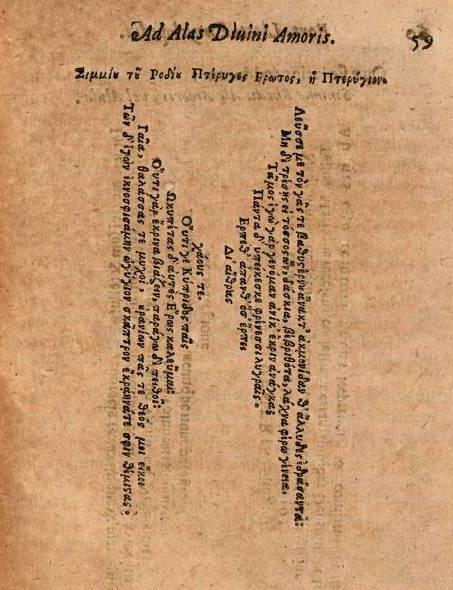 Ad Alas Diuini Amoris. 59
Σιμμίου τοῦ Ροδίου Πτέρυγες Ερωτος, ἢ Πτερύγιον.
Λεῦσσε με τὸν γᾶς τε βαθυσέρνω ἄνακτ' ἀκμονίδαν θ' ἄλλυδις ἑδράσαντα:
Μὴ δὲ τρέσῃς εἰ τόσσος ὢν, δάσκια, βέβριθότα, λάχνα φέρω γένεια.
Τᾶμος ἐγὼ γὰρ γενόμαν ἁνίκ' ἔκριν ἀνάγκα
Πάντα δ' ὑπείκεσκε φρίνεσσι λυγραῖς.
Ερπεθ' ἅπανθ' ὅσ' ἕρπει
Δι' αἴθρας
χάους τε.
Οὔτι γε Κύπριδος παῖς
Ὠκυπέτας δ' αὐτὸς Ἔρως καλεῦμαι:
Οὔτι γὰρ ἔκρινα βιάζων, παράγω δὲ πειθοῖ:
Γαῖα, θαλάσσας τε μυχοὶ, οὐρανίων πᾶς τὲ θεὸς μοι εἴκει
Τῶν δ' ἐγὼν ἐκνοσφισάμην ὠγύγιον σκᾶπτρον ἐκράηνά τε σφιν θέμιστας.